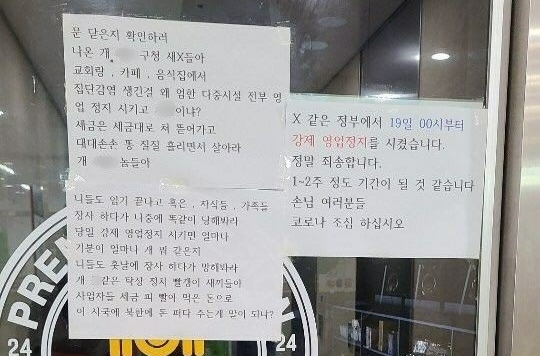 문 닫은지 확인하러
나온 개 구청 새X들아
교회랑 , 카페 , 음식집에서
집단감염 생긴걸 왜 엄한 다중시설 전부 영
업 정지 시키고 이냐?
세금은 세금대로 쳐 뜯어가고
대대손손 똥 질질 흘리면서 살아라
개 놈들아
니들도 임기 끝나고 혹은 , 자식들 , 가족들
장사 하다가 나중에 똑같이 당해봐라
당일 강제 영업정지 시키면 얼마나
기분이 얼마나 개 뭐 같은지
니들도 훗날에 장사 하다가 망해봐라
개 같은 탁상 정치 빨갱이 새끼들아
사업자들 세금 피 빨아 먹은 돈으로
이 시국에 북한에 돈 퍼다 주는게 말이 되냐?
X 같은 정부에서 19일 00시부터
강제 영업정지를 시켰습니다.
정말 죄송합니다.
1~2주 정도 기간이 될 것 같습니다
손님 여러분들
코로나 조심 하십시오
PREM
24
24